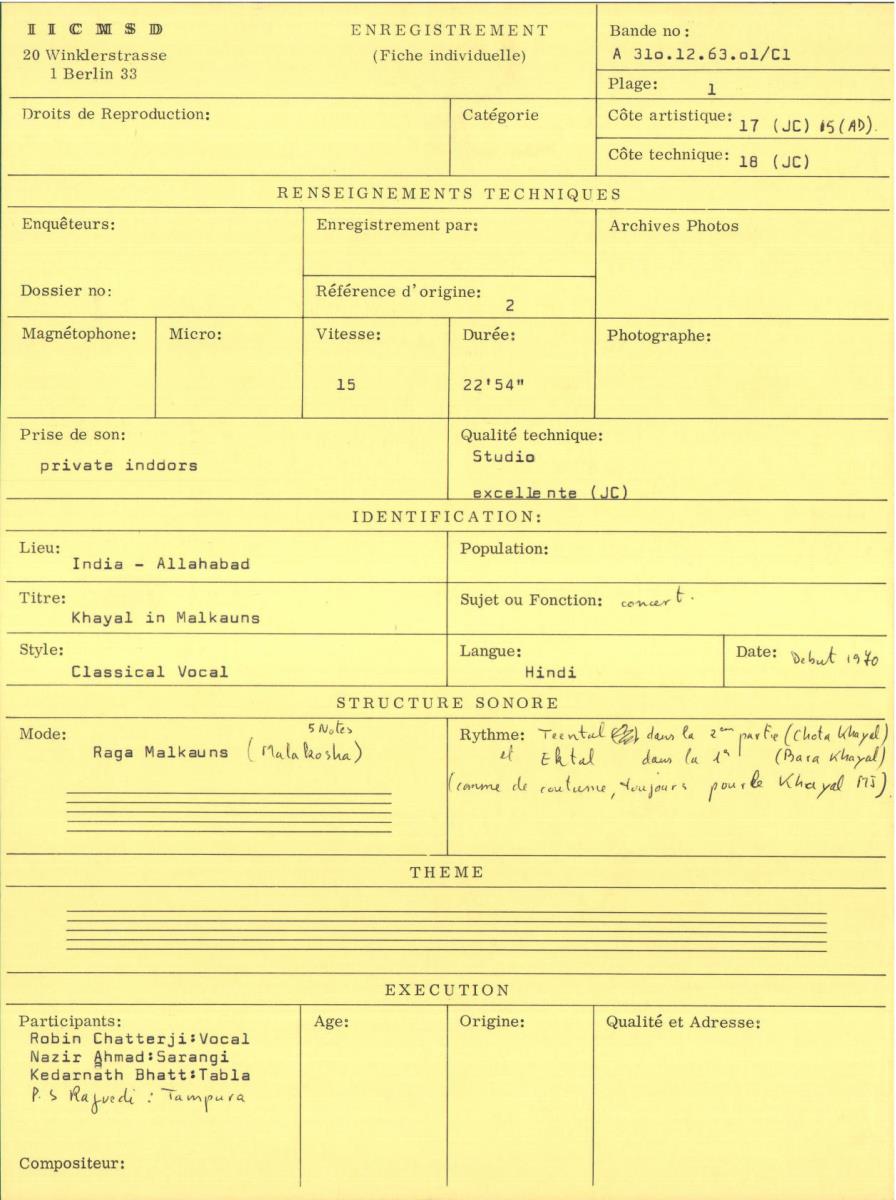 I I C M S D
20 Winklerstrasse
1 Berlin 33
ENREGISTREMENT
(Fiche individuelle)
Bande no:
A 31o.12.63.o1/C1
Plage: 1
Droits de Reproduction:
Catégorie
Côte artistique: 17 (JC) 15(AD).
Côte technique: 18 (JC)
RENSEIGNEMENTS TECHNIQUES
Enquêteurs:
Enregistrement par:
Archives Photos
Dossier no:
Référence d'origine: 2
Magnétophone:
Micro:
Vitesse:
15
Durée:
22'54"
Photographe:
Prise de son:
private inddors
Qualité technique:
Studio
excellente (JC)
IDENTIFICATION:
Lieu:
India - Allahabad
Population:
Titre:
Khayal in Malkauns
Sujet ou Fonction: concert.
Style:
Classical Vocal
Langue:
Hindi
Date: Debut 1970
STRUCTURE SONORE
Mode:
5 Notes
Raga Malkauns (Malakosha)
Rythme: Teental dans la 2em partie (Chota Khayal)
et Ektal dans la 1e (Bara Khayal)
(comme de coutume, toujours pour le Khayal MJ).
THEME
EXECUTION
Participants:
Robin Chatterji:Vocal
Nazir Ahmad:Sarangi
Kedarnath Bhatt:Tabla
P. S : Tampura
Age:
Origine:
Qualité et Adresse:
Compositeur: